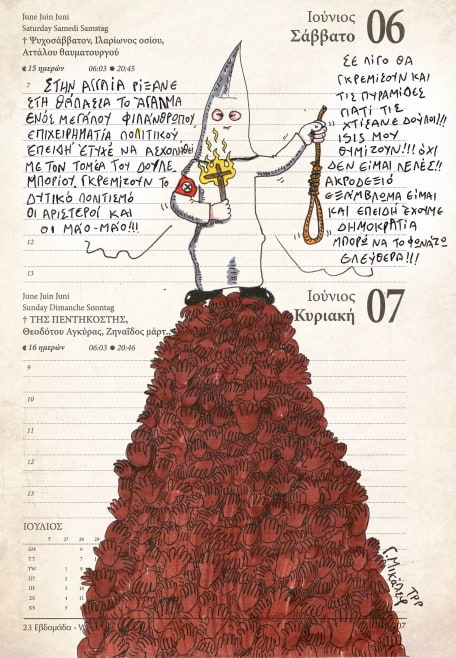 June Juin Juni
Saturday Samedi Samstag
† Ψυχοσάββατον, Ιλαρίωνος οσίου,
Ατταλου θαυματουργού
Ιούνιος
Σάββατο
06
15 ημερών 06:03 ● 20:45
7
ΣΤΗΝ ΑΓΓΛΙΑ ΡΙΞΑΝΕ
ΣΤΗ ΘΑΛΑΣΣΑ ΤΟ ΑΓΑΛΜΑ
ΕΝΟΣ ΜΕΓΑΛΟΥ ΦΙΛΑΝΘΡΩΠΟΥ
ΕΠΙΧΕΙΡΗΜΑΤΙΑ ΠΟΛΙΤΙΚΟΥ
ΕΠΕΙΔΗ ΕΤΥΧΕ ΝΑ ΑΣΧΟΛΗΘΕΙ
ΜΕ ΤΟΝ ΤΟΜΕΑ ΤΟΥ ΔΟΥΛΕ
ΜΠΟΡΙΟΥ. ΓΚΡΕΜΙΖΟΥΝ ΤΟ
ΔΥΤΙΚΟ ΠΟΛΙΤΙΣΜΟ
ΟΙ ΑΡΙΣΤΕΡΟΙ ΚΑΙ
ΟΙ ΜΑΟ-ΜΑΟ!!!
ΣΕ ΛΙΓΟ ΘΑ
ΓΚΡΕΜΙΣΟΥΝ ΚΑΙ
ΤΙΣ ΠΥΡΑΜΙΔΕΣ
ΓΙΑΤΙ ΤΙΣ
ΧΤΙΣΑΝΕ ΔΟΥΛΟΙ!!
ISIS ΜΟΥ
ΘΙΜΙΖΟΥΝ!!! ΌΧΙ
ΔΕΝ ΕΙΜΑΙ ΛΕΛΕΣ!!
ΑΚΡΟΔΕΞΙΟ
ΕΞΑΜΒΛΩΜΑ ΕΙΜΑΙ
ΚΑΙ ΕΠΕΙΔΗ ΕΧΟΥΜΕ
ΔΗΜΟΚΡΑΤΙΑ
ΜΠΟΡΩ ΝΑ ΤΟ ΦΩΝΑΖΩ
ΕΛΕΥΘΕΡΑ!!!
12
13
June Juin Juni
Sunday Dimanche Sonntag
† ΤΗΣ ΠΕΝΤΗΚΟΣΤΗΣ,
Θεοδότου Αγκύρας, Ζηναΐδος μάρτ.
Ιούνιος
Κυριακή
07
16 ημερών 06:03 ● 20:46
9
10
11
12
13
ΙΟΥΛΙΟΣ
27 28 29
ΔΜ 6
ΤΤ 7
TW 1 8
ΠΤ 2 9
ΠF 3 10
ΣS 4 11
ΚS 5
23 Εβδομάδα
07
Γ. ΜΙΚΑΛΕΦ
ΤΡΡ